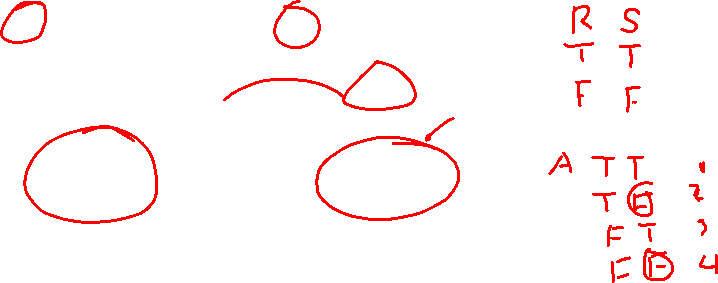 R S
T T
F F
A T T 1
T F 2
F T 3
F F 4